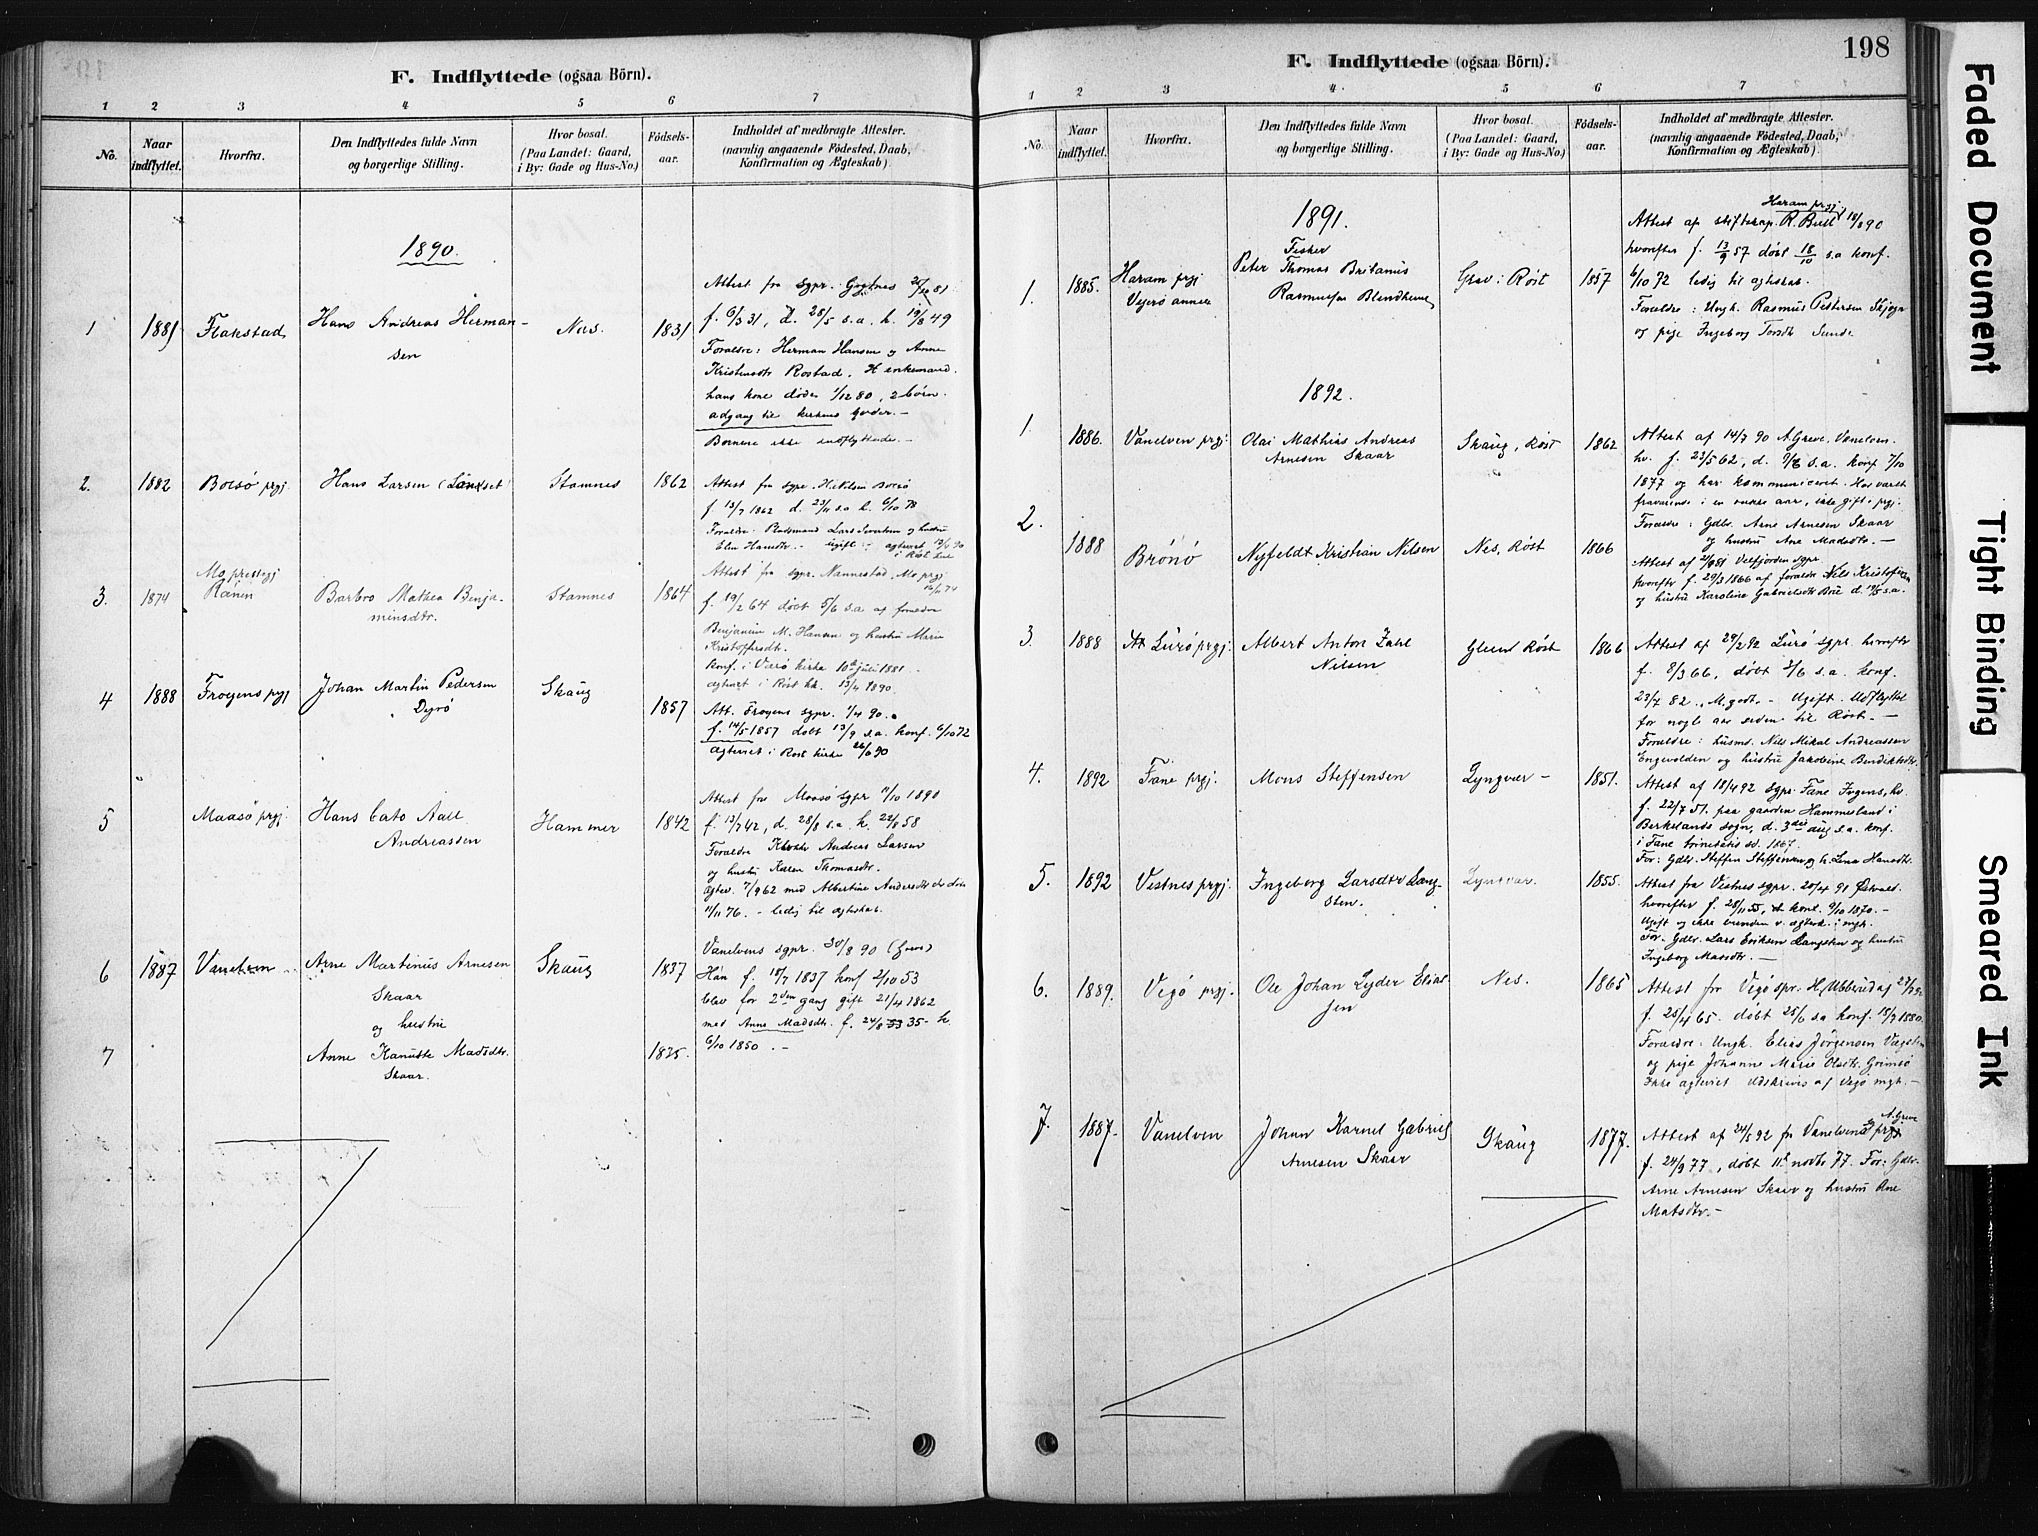 F. Indflyttede (ogsaa Börn).
1 2 3 4 5 6 7
No.
Naar indflyttet.
Hvorfra.
Den Indflyttedes fulde Navn
og borgerlige Stilling.
Hvor bosat.
(Paa Landet: Gaard,
i By: Gade og Hus-No.)
Födsels-
aar.
Indholdet af medbragte Attester.
(navnlig angaaende Födested, Daab,
Konfirmation og Ægteskab).
1890.
1 1881 Flakstad Hans Andreas Herman-
sen
Nes. 1831
f. 6/3 31, d. 28/5 s.a. k. 19/8 49
Foraldre: Herman Hansen og Anne
Kristensdtr Rostad. Enkemand.
hans kone døde 1/12 80, 2 børn.
adgang til kirkens goder.-
Børnene ikke indflyttede.-
2. 1882 Bolsö prgj. Hans Larsen (Landset) Stamnes 1862
f 13/7 1862 d. 23/11 s.a k. 6/10 78
3. 1874 Mo prestegj
Ranen
Barbro Mathea Benja-
minsdtr.
Stamnes 1864
Attest fra sgpr. Nannestad, Mo prgj
f. 19/2 64 døbt 5/6 s.a af foraldre
Benjamin M. Hansen og hustru Maria
Kristoffersdtr.
konf. i Værö kirke 10de juli 1881.
agteviet i Røst kk. 13/4 1890.
4 1888 Froyens prgj Johan Martin Pedersen
Dyrö
Skaug 1857
Att. Froyens sgpr. 1/4 90.
f. 14/5 1857 døbt 13/9 s.a. konf. 6/10 72
agteviet i Røst kirke 26/6 90
5 Maasö prgj. Hans Cato Aall
Andreassen
Hammer 1842
Attest fra Maasö sgpr 11/10 1890
f. 13/7 42, d. 28/8 s.a. k. 22/8 58
Foraldre Andreas Larsen
og hustru Karen Thomasdtr.
Agtev. 7/9 62 med Albertine Andersdtr der døde
11/11 76. - ledig til agteskab.
6 1887 Vanelven Arne Martinus Arnesen
Skaar
og
hustru
Skaug 1837
Vanelvens sgpr. 30/8 90 (Greve)
Han f. 18/7 1837 konf 2/10 53
blev for 2den gang gift 21/4 1862
med Anne Madsdtr. f. 24/8 35 - k.
6/10 1850. -
7 Anne Kanutte Madsdtr.
Skaar.
1825.
F. Indflyttede (ogsaa Börn). 198
1 2 3 4 5 6 7
No.
Naar indflyttet.
Hvorfra.
Den Indflyttedes fulde Navn
og borgerlige Stilling.
Hvor bosat.
(Paa Landet: Gaard,
i By: Gade og Hus-No.)
Födsels-
aar.
Indholdet af medbragte Attester.
(navnlig angaaende Födested, Daab,
Konfirmation og Ægteskab).
1891.
1. 1885. Haram prgj
Fisker
Peter Thomas Britanus
Rasmussen
Røst 1857
Haram prgj.
Attest af stiftskap. 18/8 90
hvorefter f. 13/9 57 døbt 18/10 s.a konf.
6/10 72 ledig til agteskab.
Foraldre: Ungk. Rasmus Pettersen
og pige Ingeborg Sunde
1892.
1. 1886. Vanelven prgj: Olai Mathias Andreas
Arnesen Skaar
Skaug, Røst 1862
Attest af 14/7 90 A. Greve. Vanelven.
hv. f. 23/5 62, d. 9/6 s.a. konf 7/10
1877 og har kommuniceret. Har varet
fravarende i en rakke aar, ikke gift i prgj.
Foraldre: Gdbr. Arne Arnesen Skaar
og hustru Ane Madsdtr. -
2. 1888 Brönö Nyfeldt Kristian Nilsen Nes, Röst 1866
Velfjorden sgpr.
hvorefter f. 29/3 1866 af foraldre Nils Kristofersen
og hustru Karoline Gabrielsdtr
3. 1888 Lurö prgj. Albert Anton Zahl
Nilsen
Glea Röst 1866
Attest af 29/2 92 Lurö sgpr. hvorefter
f. 8/3 66, døbt s.a. konf.
23/7 82. M. godt. - Ugift. Udflyttet
for nogle aar siden til Röst. -
Foraldre: husmd. Nils Mikal Andreassen
Engevolden og hustru Jakobine Bendiktsdtr.
4. 1892 Fane prgj. Mons Steffensen Lyngvær - 1851.
Attest af 18/4 92 sgpr. Fane
f. 22/7 51. paa gaarden Hammesland i
Berkelands sogn, d. 3die aug s.a. konf.
i Fane trinitatis sd. 1867.
For: Gdbr. Steffen Steffensen og h. Lena Hansdtr.
5. 1892 Vestnes prgj. Ingeborg Larsdtr Lang-
sten.
Lyngvær. 1855.
Attest fra Vestnes sgpr. 20/4 91
hvorefter f. 28/11 55, konf. 9/10 1870. -
Ugift og ikke
For. Gdbr. Lars Eriksen Langsten og hustru
Ingeborg Madsdtr. -
6. 1889. Vegö prgj. Ole Johan Lyder Elias-
sen
Nes. 1865
Attest fr Vegö spr.
f. 25/4 65. døbt 25/6 s.a konf. 18/7 1880.
Foraldre: Ungk. Elias Jörgensen
og pige Johanne Marie Olsdtr.
Ikke agteviet. Udskrives af Vegö mgh. -
7. 1887. Vanelven Johan Karnel Gabriel
Arnesen Skaar
Skaug 1877.
A. Greve
Attest af 24/5 92 fr Vanelvens prgj
f. 24/9 77, døbt 11te novbr 77. For: Gdbr.
Arne Arnesen Skaar og hustru Ane
Matsdtr. -
Faded Document
Tight Binding
Smeared Ink